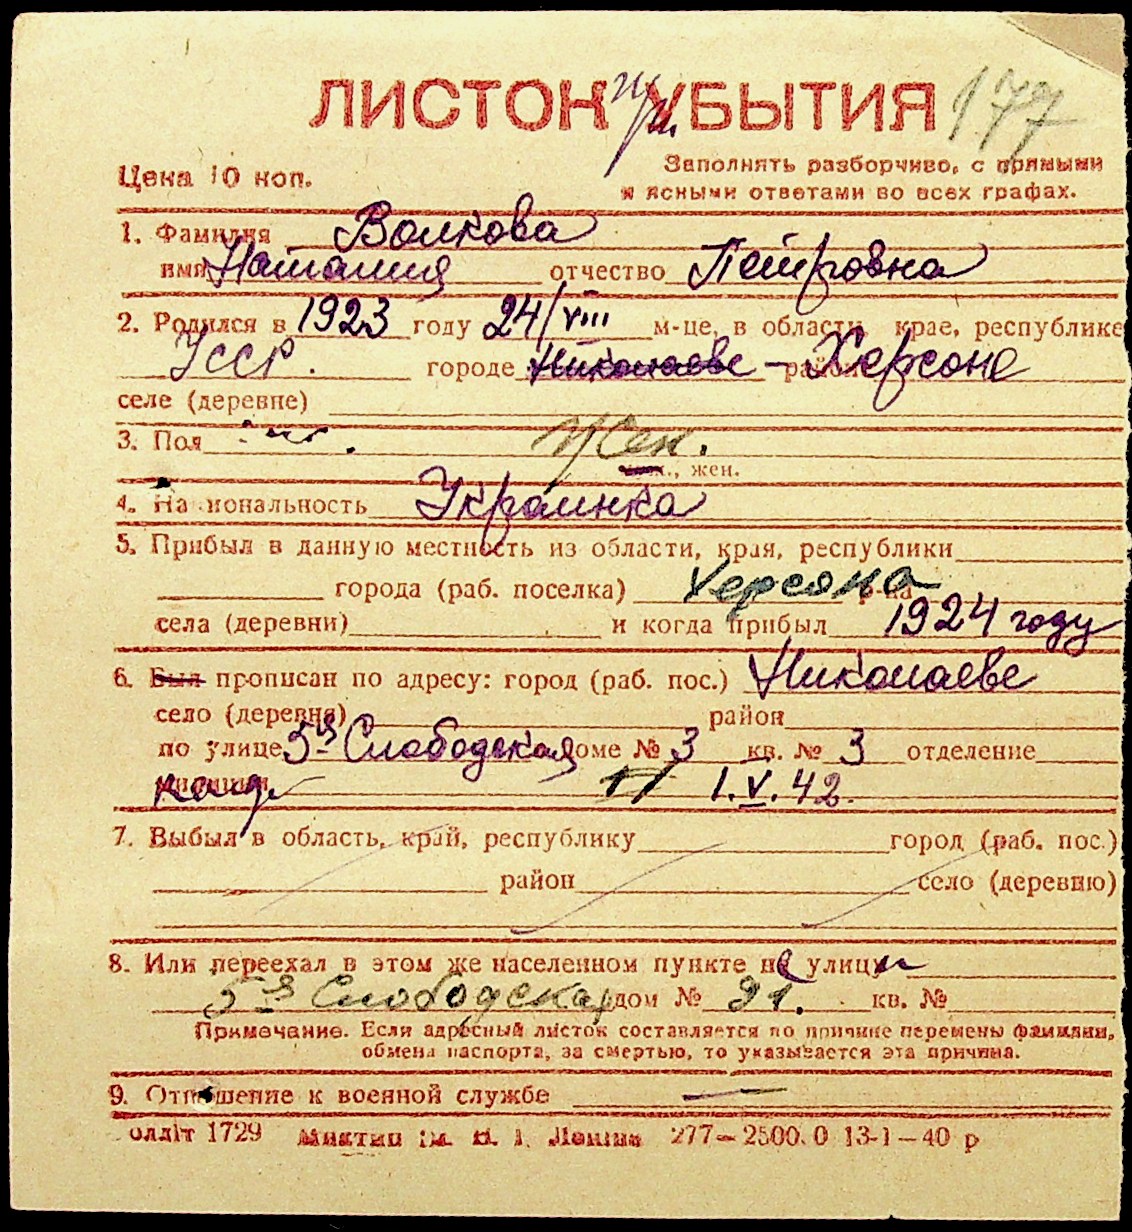 ЛИСТОК УБЫТИЯ 177
Цена 10 коп.
Заполнять разборчиво, с прямыми
и ясными ответами во всех графах.
1. Фамилия Волкова
имя Наталия отчество Петровна
2. Родился в 1923 году 24/VIII м-це, в области, крае, республике
УССР. городе Николаеве - Херсоне
селе (деревне)
3. Пол жен.
муж., жен.
4. Национальность Украинка
5. Прибыл в данную местность из области, края, республики
города (раб. поселка) Херсона р-на
села (деревни) и когда прибыл 1924 году
6. Был прописан по адресу: город (раб. пос.) Николаеве
село (деревня) район
по улице 5я Слободская доме № 3 кв. № 3 отделение
милиции 1.V.42.
7. Выбыл в область, край, республику город (раб. пос.)
район село (деревню)
8. Или переехал в этом же населенном пункте не улицы
5я Слободская дом № 91. кв. №
Примечание. Если адресный листок составляется по причине перемены фамилии,
обмена паспорта, за смертью, то указывается эта причина.
9. Отношение к военной службе —
Оллiт 1729 Миктип iм. В. I. Ленiна 277—2500.0 13-1—40 р